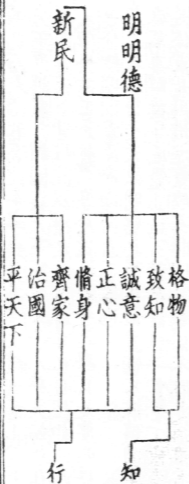 明明德
新民
格物
致知
誠意
正心
脩身
齊家
治國
平天下
知
行